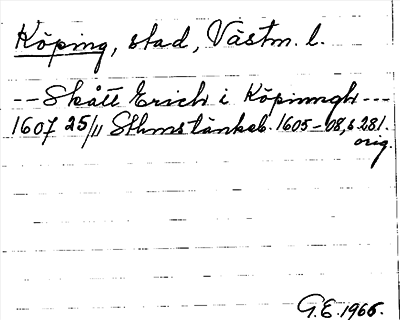 Köping, stad, Västm. l.
-- Skått Erich i Köpinngh ---
1607 25/11 Sthms tänkeb. 1605-08, s 281.
orig.
G.E. 1966.